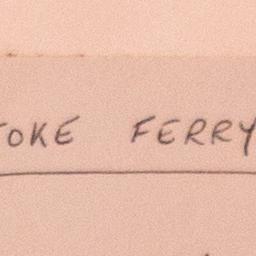 TOKE FERRY